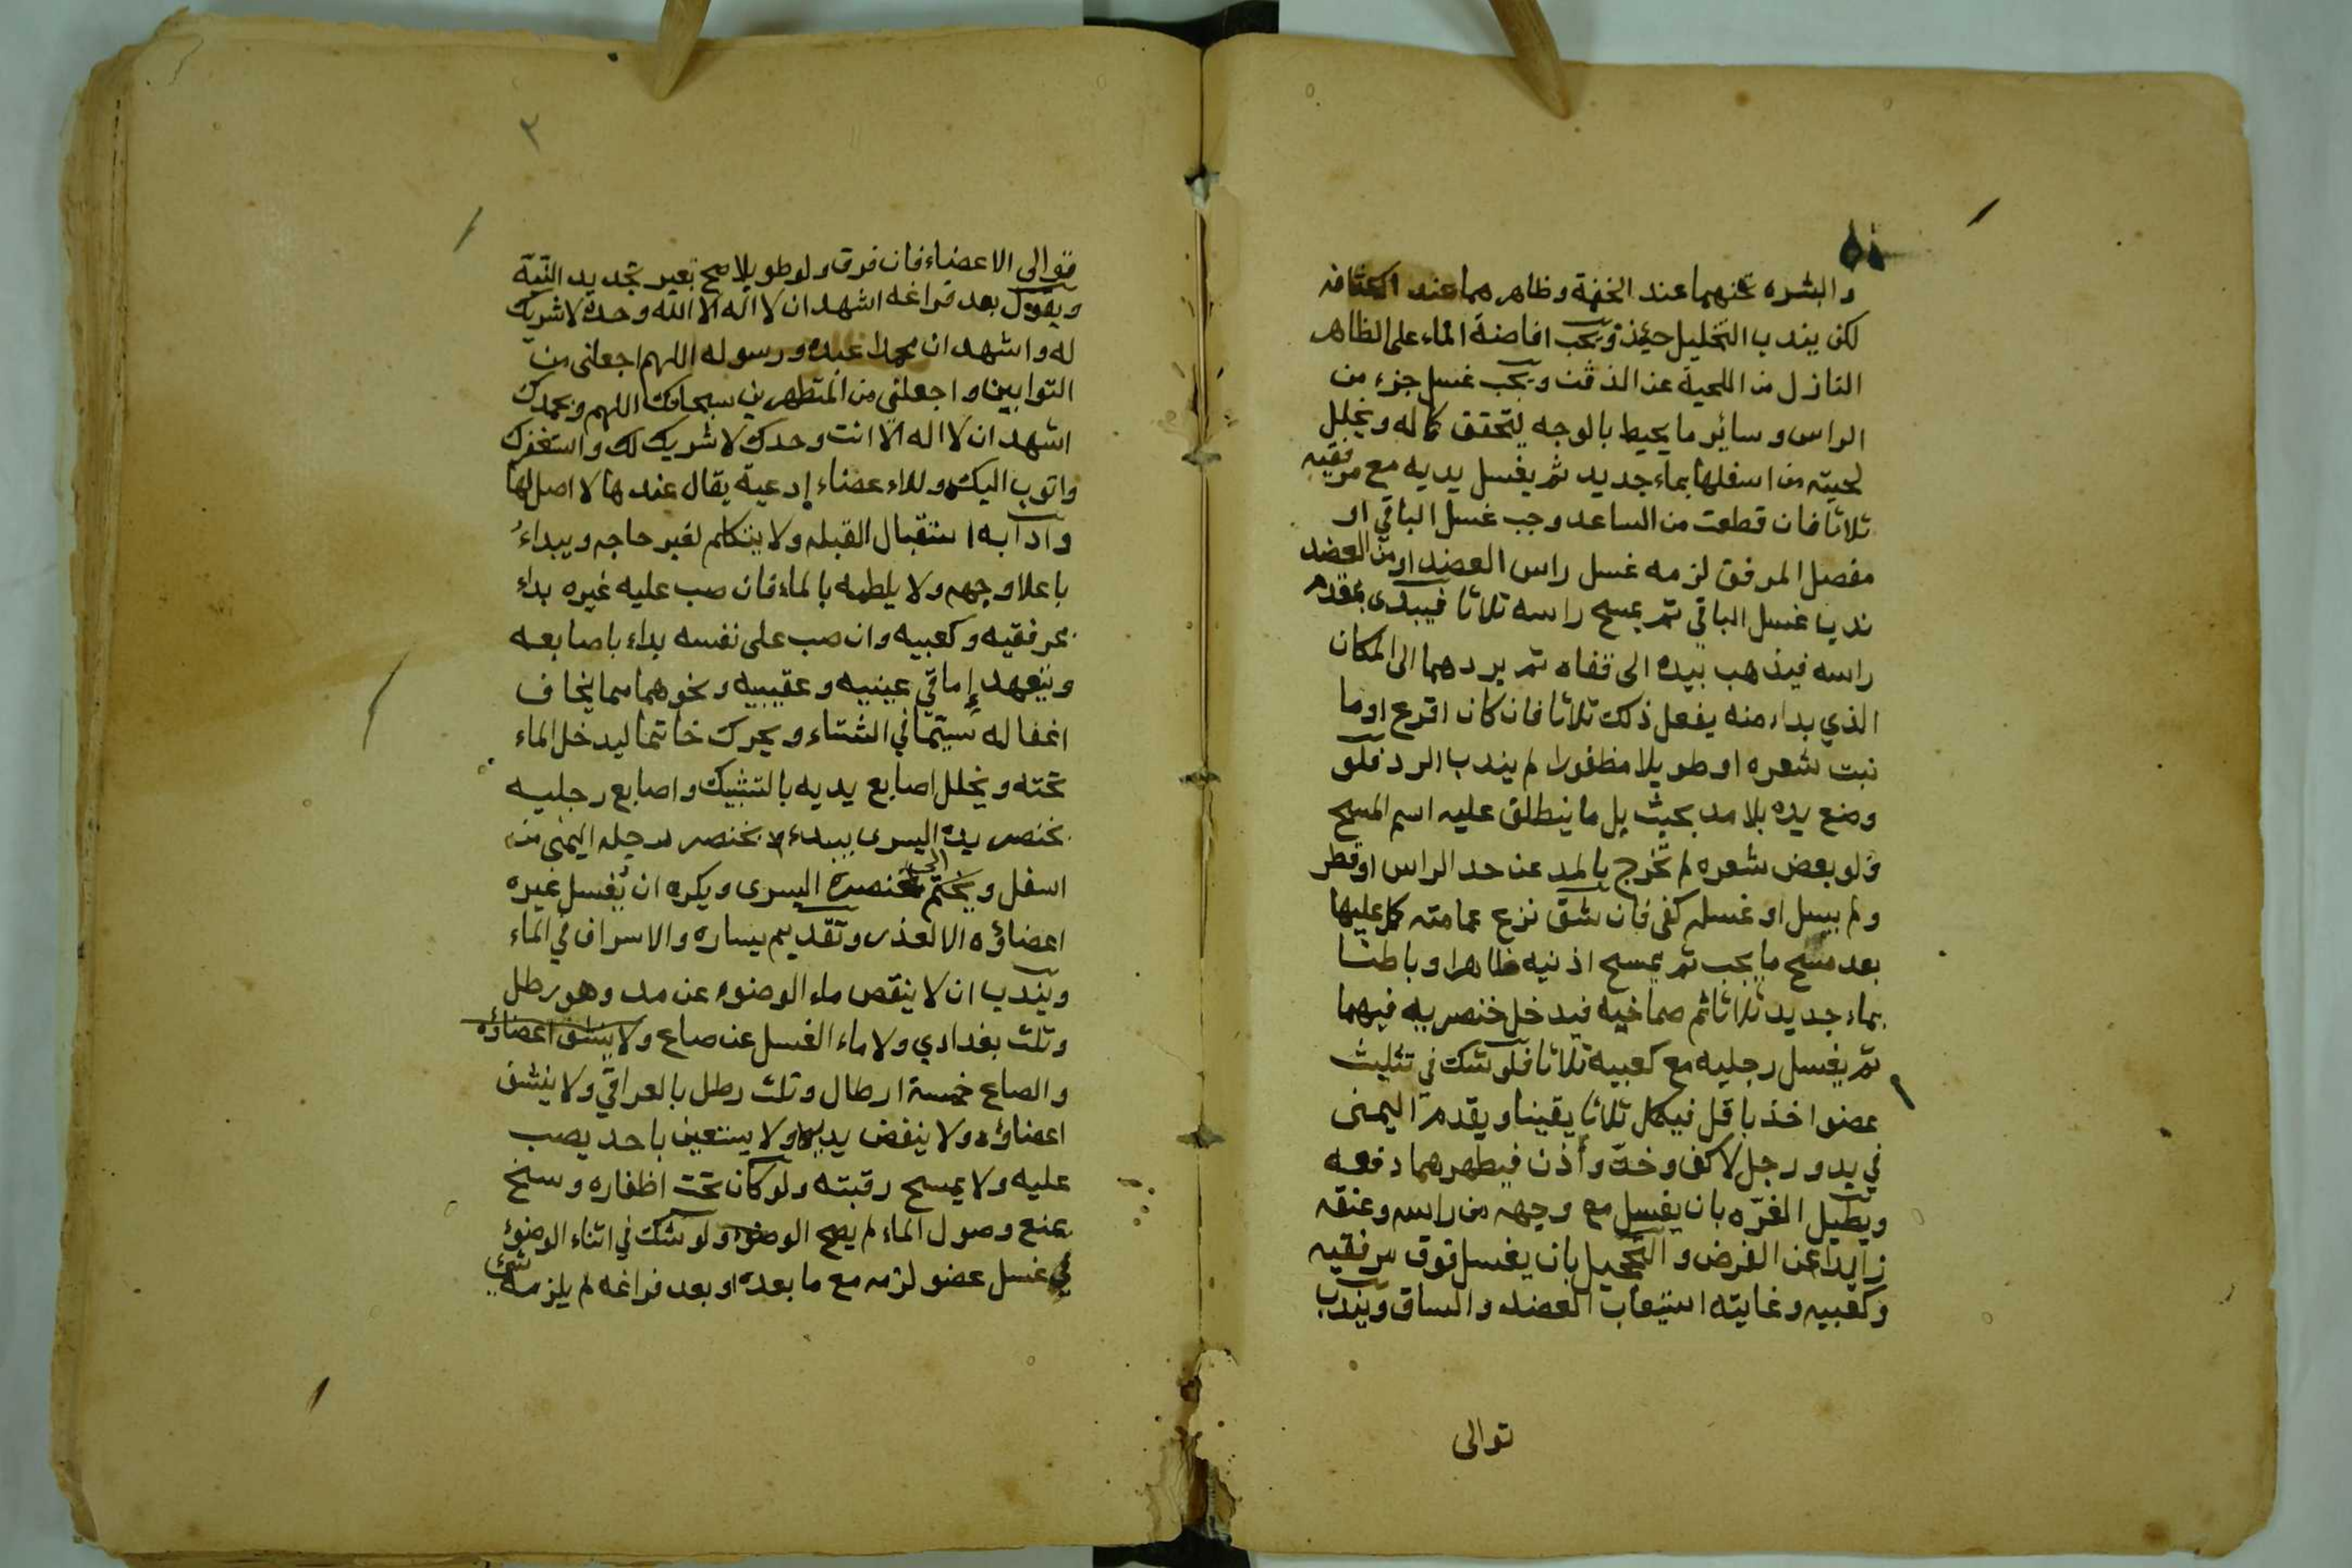 والبشره تحتهما عند الخفة وظاهرهما عند الكثافه
لكن يندب التخليل حينئذ ويجب افاضة الماء على الظاهر
النازل من اللحية عن الذقن ويجب غسل جزء من
الراس وسائر ما يحيط بالوجه ليتحقق كماله ويخلل
لحيته من اسفلها بماء جديد ثم يغسل يديه مع مرفقيه
ثلاثا فان قطعت من الساعد وجب غسل الباقي او
مفصل المرفق لزمه غسل راس العضد او من العضد
ندب غسل الباقي ثم يمسح راسه ثلاثا فيبدى بمقدم
راسه فيذهب بيده الى قفاه ثم يردهما الى المكان
الذي بداء منه يفعل ذلك ثلاثا فان كان اقرع اوما
نبت شعره او طويلا مظفورا لم يندب الرد فلو
وضع يده بلا مد بحيث بل ما ينطلق عليه اسم المسح
ولو بعض شعره لم تخرج بالمد عن حد الراس او قطر
ولم يسل او غسله كفى فان شق نزع عمامته كمل عليها
بعد مسح ما يجب ثم يمسح اذنيه ظاهرا وباطنا
بماء جديد ثلاثا ثم صماخيه فيدخل خنصريه فيهما
ثم يغسل رجليه مع كعبيه ثلاثا فلو شك في تثليث
عضو اخذ باقل فيكمل ثلاثا يقينا ويقدم اليمنى
في يد ورجل لا كف وخد وأذن فيطهرهما دفعه
ويطيل الغرّه بان يغسل مع وجهه من راسه وعنقه
زايدا عن الفرض والتحجيل بان يغسل فوق مرفقيه
وكعبيه وغايته استيعاب العضد والساق ويندب
توالى
٣
توالى الاعضاء فان فرق ولو طويلا صح بغير تجديد النيّة
ويقول بعد فراغه اشهد ان لا اله الا الله وحده لا شريك
له واشهد ان محمدا عبده ورسوله اللهم اجعلنى من
التوابين واجعلني من المتطهرين سبحانك اللهم وبحمدك
اشهد ان لا اله الا انت وحدك لا شريك لك واستغفرك
واتوب اليك وللاء عضاء إدعية يقال عندها لا اصل لها
وادآبه استقبال القبله ولا يتكلم لغير حاجه ويبداء
باعلا وجهه ولا يلطمه بالماء فان صب عليه غيره بداء
بمرفقيه وكعبيه وان صب على نفسه بداء باصابعه
ويتعهد إماقي عينيه وعقبيه ونحوهما مما يخاف
اغفاله سيّما في الشتاء ويحرك خاتما ليدخل الماء
تحته ويخلل اصابع يديه بالتشبيك واصابع رجليه
بخنصر يده اليسرى يبدء بخنصر رجله اليمنى من
اسفل ويختم بخنصره اليسرى ويكره ان يُغسل غيره
اعضاؤه الا لعذر وتقديم يساره والاسراف في الماء
ويندب ان لا ينقص ماء الوضوء عن مد وهو رطل
وثلث بغدادي ولا ماء الغسل عن صاع ولا ينشف اعضاؤه
والصاع خمسة ارطال وثلث رطل بالعراقي ولا ينشف
اعضاؤه ولا ينفض يديه ولا يستعين باحد يصب
عليه ولا يمسح رقبته ولو كان تحت اظفاره وسخ
يمنع وصول الماء لم يصح الوضوء ولو شك في اثناء الوضوء
في غسل عضو لزمه مع ما بعده او بعد فراغه لم يلزمه شيء